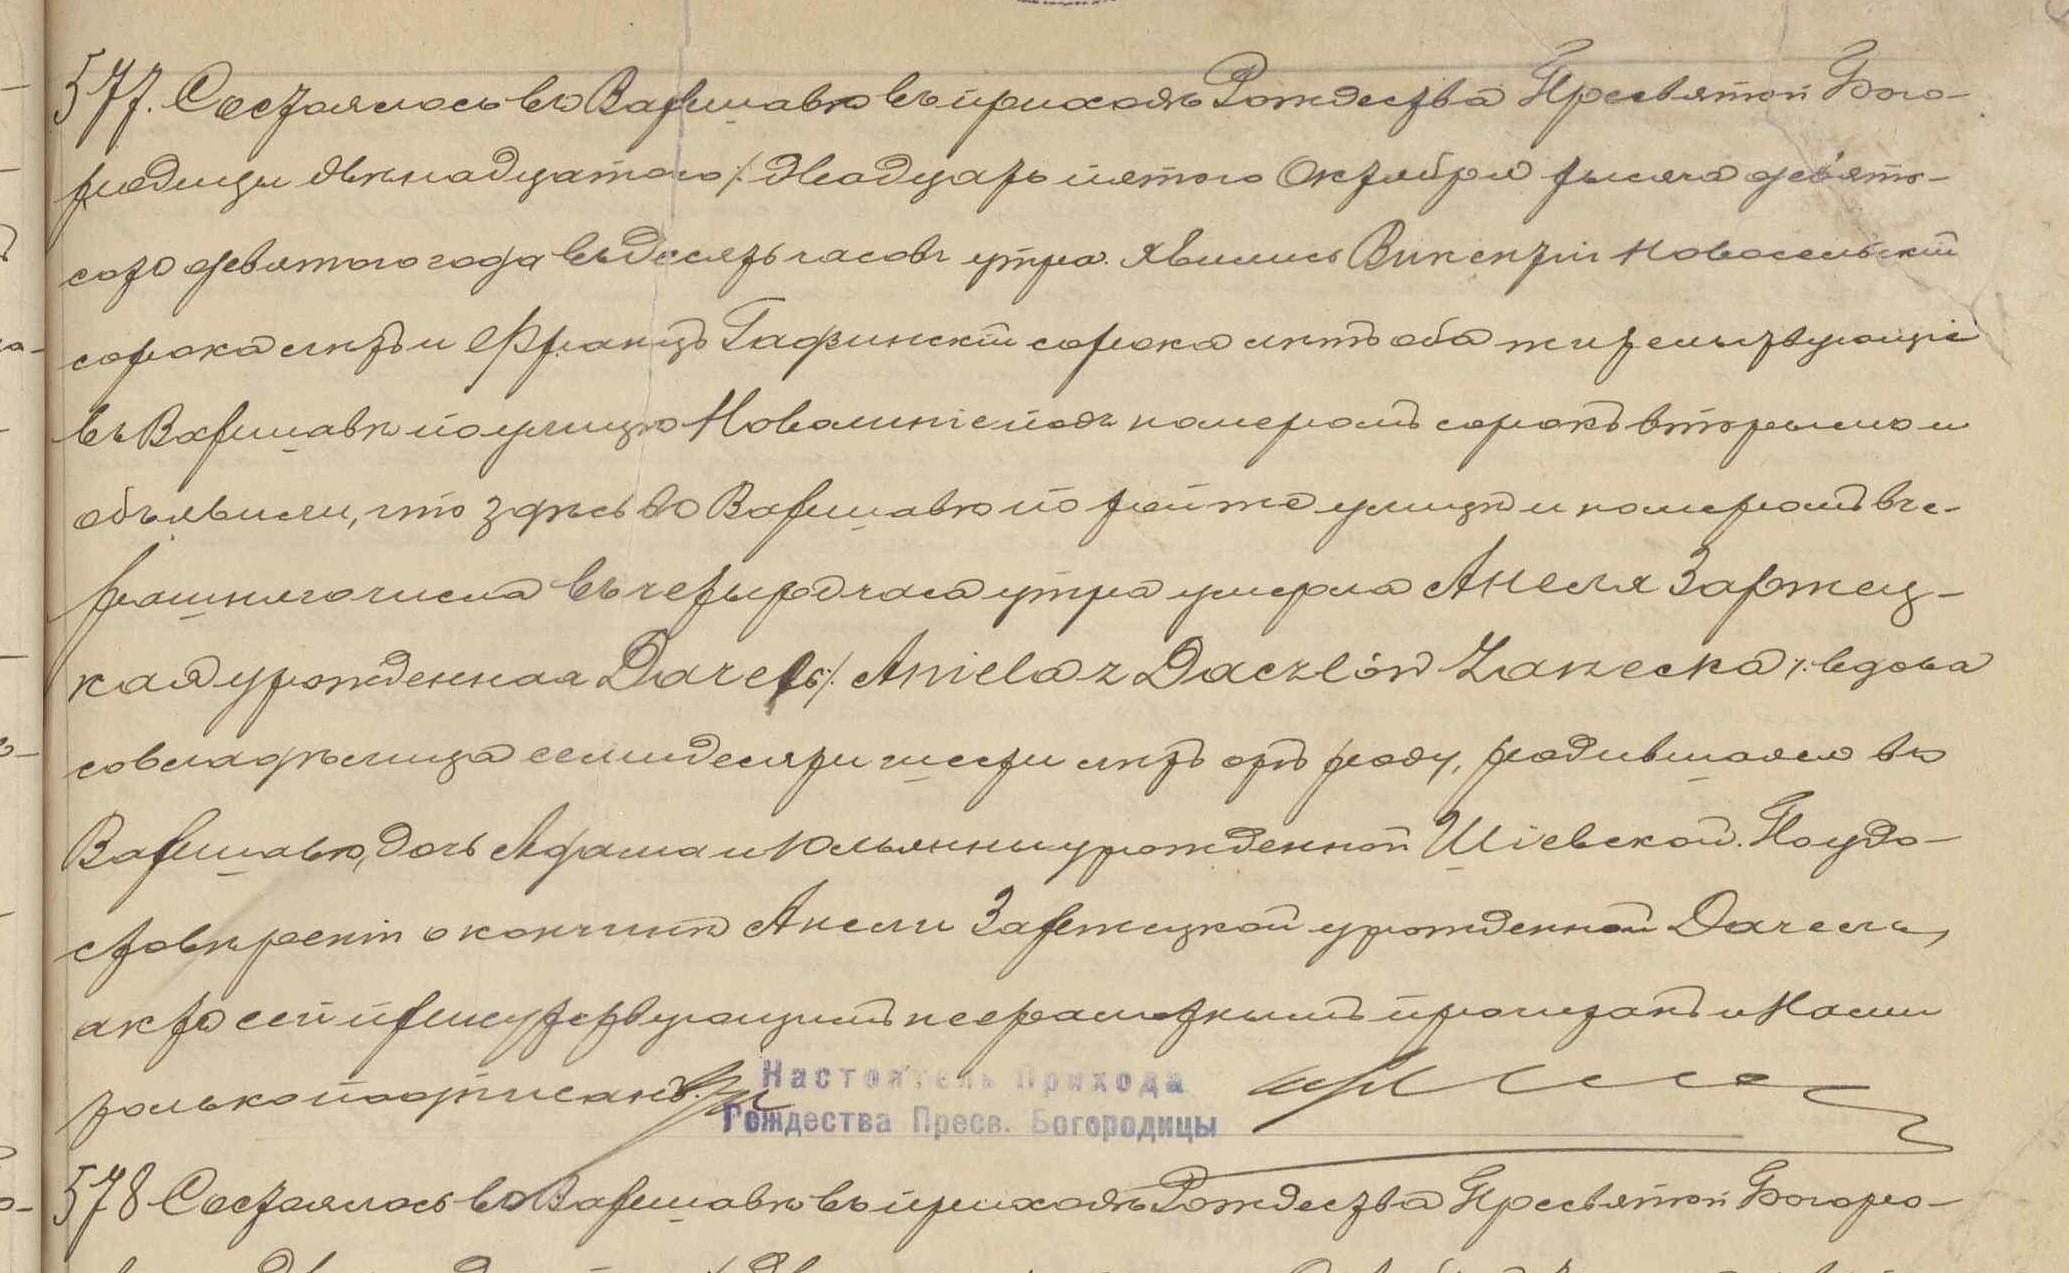 577. Состоялось въ Варшавѣ въ приходѣ Рождества Пресвятой Бого-
родицы двѣнадцатого /: двадцать пятого Октября тысяча девять-
сотъ девятого года въ десять часовъ утра. Явились Викентій Новосельскій
сорока лѣтъ и Францъ Гафинскій сорока лѣтъ оба жительствующіе
въ Варшавѣ по улицѣ Новолипіе подъ номеромъ сорокъ вторымъ и
объявили, что здѣсь въ Варшавѣ по той же улицѣ и номеромъ вче-
рашняго числа въ четыре часа утра умерла Анеля Заржец-
кая урожденная Дачелъ /: Aniela z Daczlów Zarzecka /: вдова
совладѣлица семидесяти шести лѣтъ отъ роду, родившаяся въ
Варшавѣ, дочь Адама и Юльянны урожденной Шіевской. По удо-
стовѣреніи о кончинѣ Анели Заржецкой урожденной Дачелъ,
актъ сей присутствующимъ неграмотнымъ прочитанъ и Нами
только подписанъ.
Настоятель Прихода
Рождества Пресв. Богородицы
578 Состоялось въ Варшавѣ въ приходѣ Рождества Пресвятой Богоро-